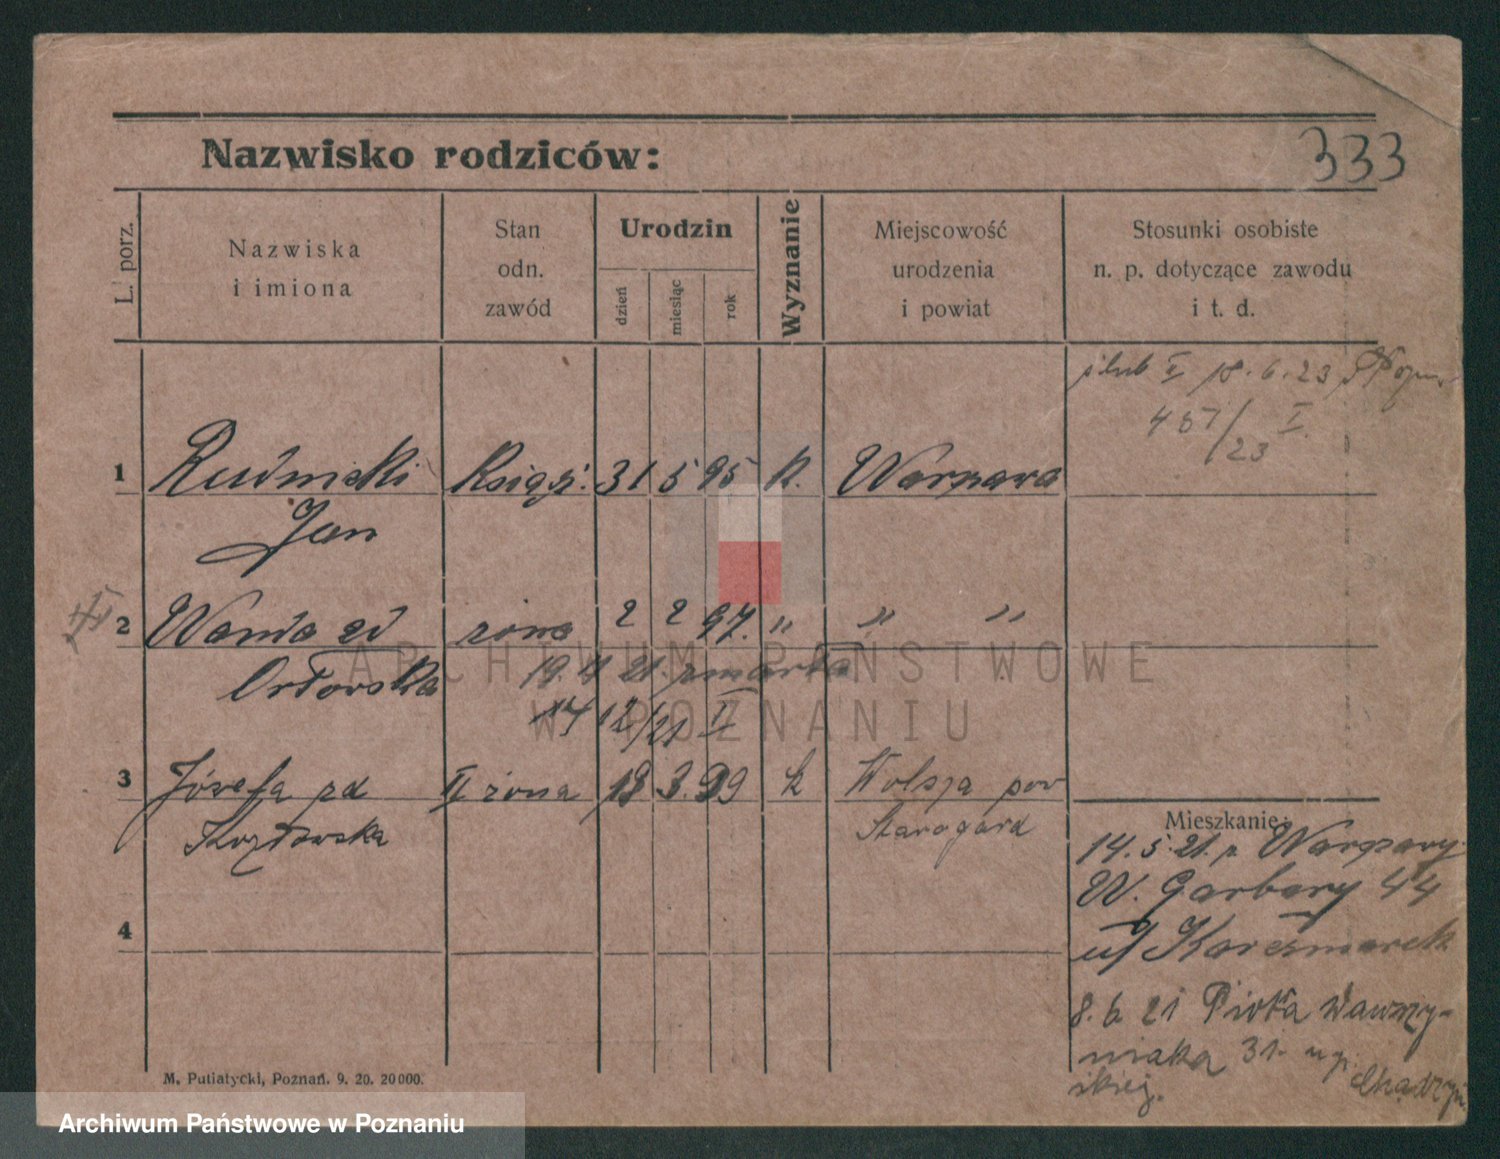 Nazwisko rodziców:
333
L. porz.
Nazwiska
i imiona
Stan
odn.
zawód
Urodzin
dzień
miesiąc
rok
Wyznanie
Miejscowość
urodzenia
i powiat
Stosunki osobiste
n. p. dotyczące zawodu
i t. d.
ślub II 18.6.23
457/23 I
1 Rudnicki Księg. 31 5 95 k. Warszawa
Jan
2 Wanda zd żona 2 2 97. " " "
Orłowska 19. 4 21. zmarła
14 12/21 II
3 Józefa zd II żona 18 3. 99 k Wolsza pow
Kozłowska Starogard
4
Mieszkanie:
14. 5. 21. z Warszawy
W. Garbary 44
u/ Karczmarek
8. 6 21 Piotra Wawrzy-
niaka 31.
skiej.
M. Putiatycki, Poznań. 9. 20. 20000.
ARCHIWUM PAŃSTWOWE
W POZNANIU
Archiwum Państwowe w Poznaniu